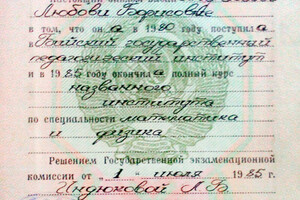 Любови Борисовне
в том, что он а в 1980 году поступил а
государственный
педагогический институт
и в 1985 году окончил а полный курс
названного
института
по специальности математика
и физика
Решением Государственной экзаменационной
комиссии от " 1 " июля 1985 г.
Индюковой Л.Б.